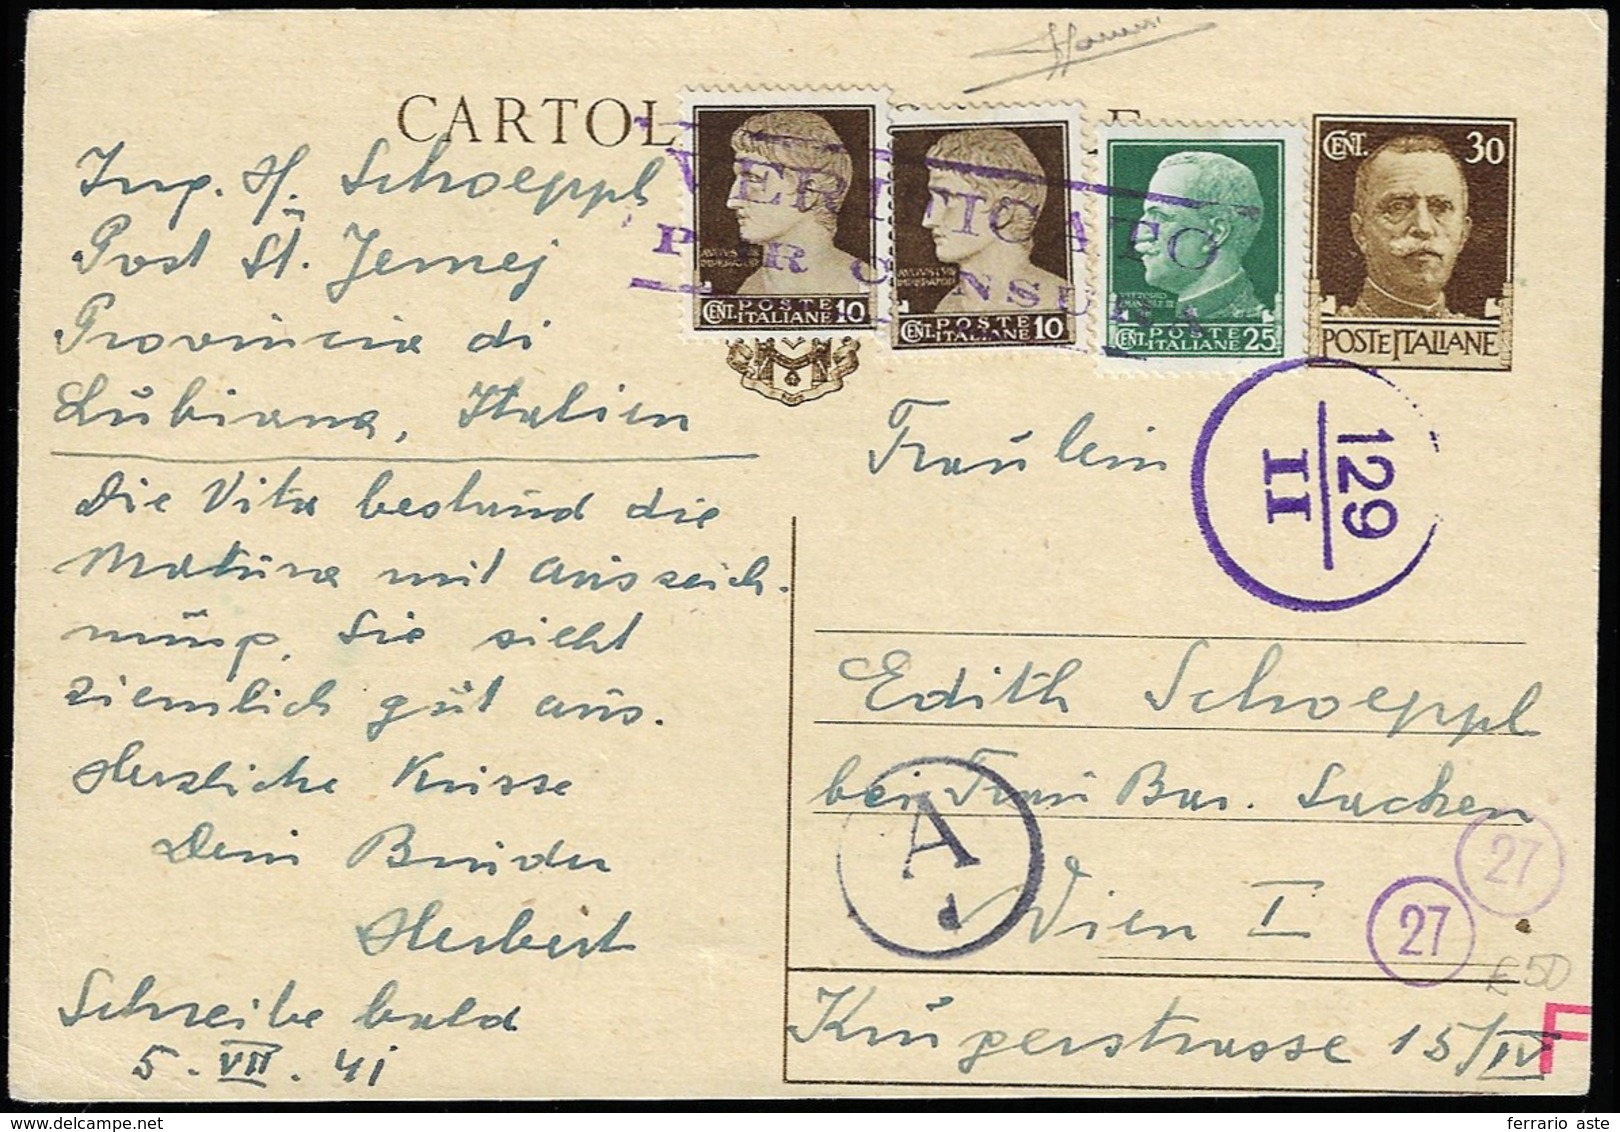 CARTOL
Ing. H. Schoeppl
Post St. Jernej
Provincia di
Lubiana, Italien
Die Vita bestand die
Matura mit Auszeich-
nung. Sie sieht
ziemlich gut aus.
Herzliche Küsse
Dein Bruder
Herbert
Schreibe bald
5. VII. 41
VERIFICATO
PER CENSURA
CENT. POSTE ITALIANE 10
CENT. POSTE ITALIANE 10
CENT. POSTE ITALIANE 25
CENT. 30
POSTE ITALIANE
129
II
Fräulein
Edith Schoeppl
bei Frau Bar. Sacken
Wien I
Krügerstrasse 15/IV
A
d
27
27
£50
F
ferrario aste